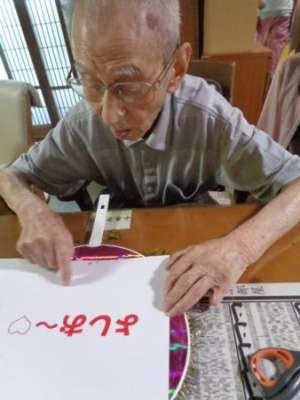 よしお～♡